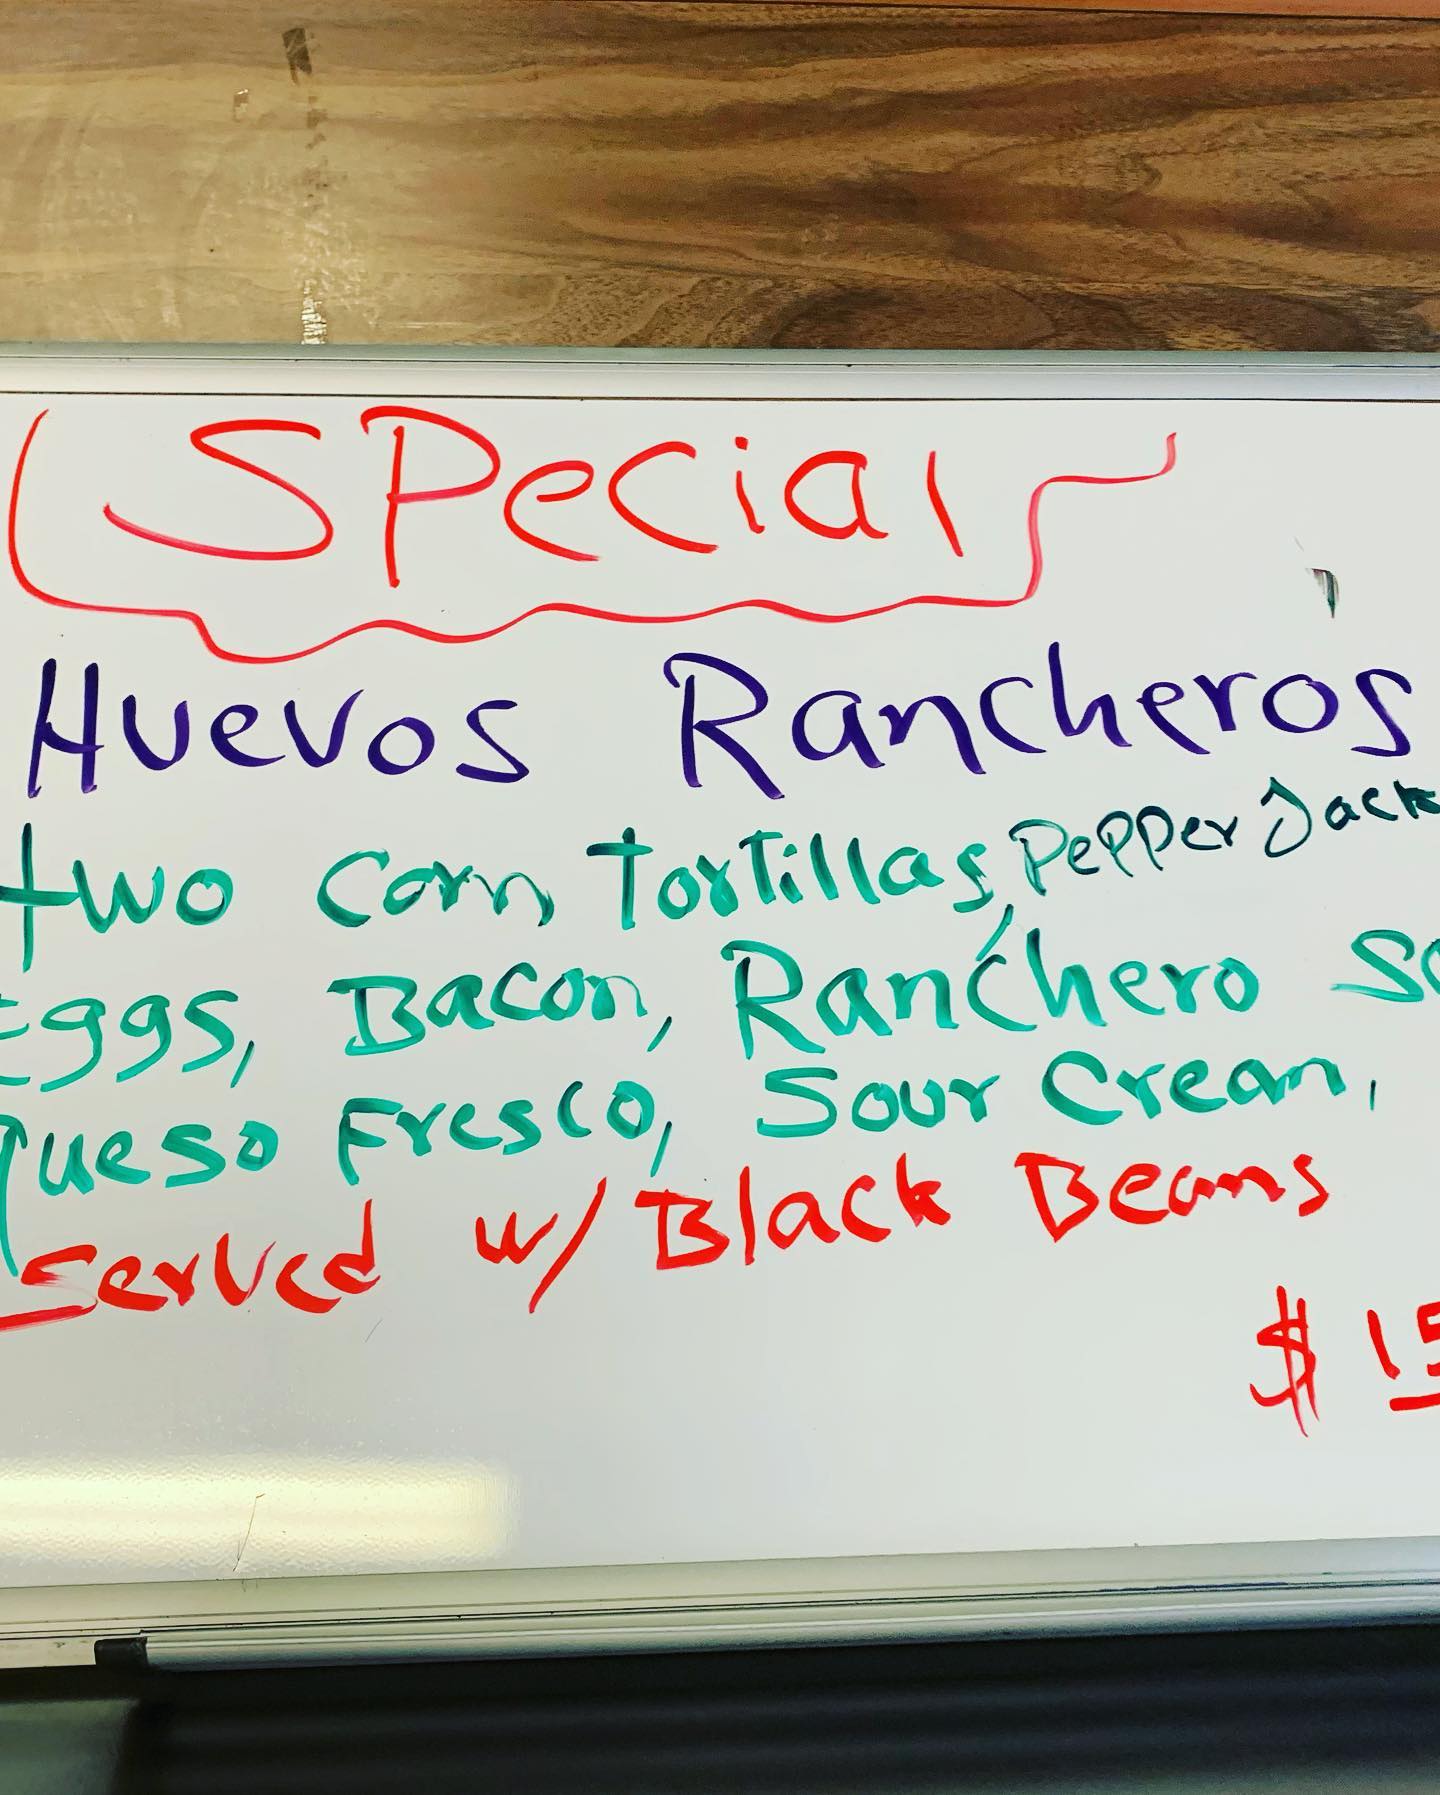 SPecial
Huevos Rancheros
two corn Tortillas, Pepper Jack
Eggs, Bacon, Ranchero
Queso Fresco, Sour Cream,
Served w/ Black Beans
$ 15